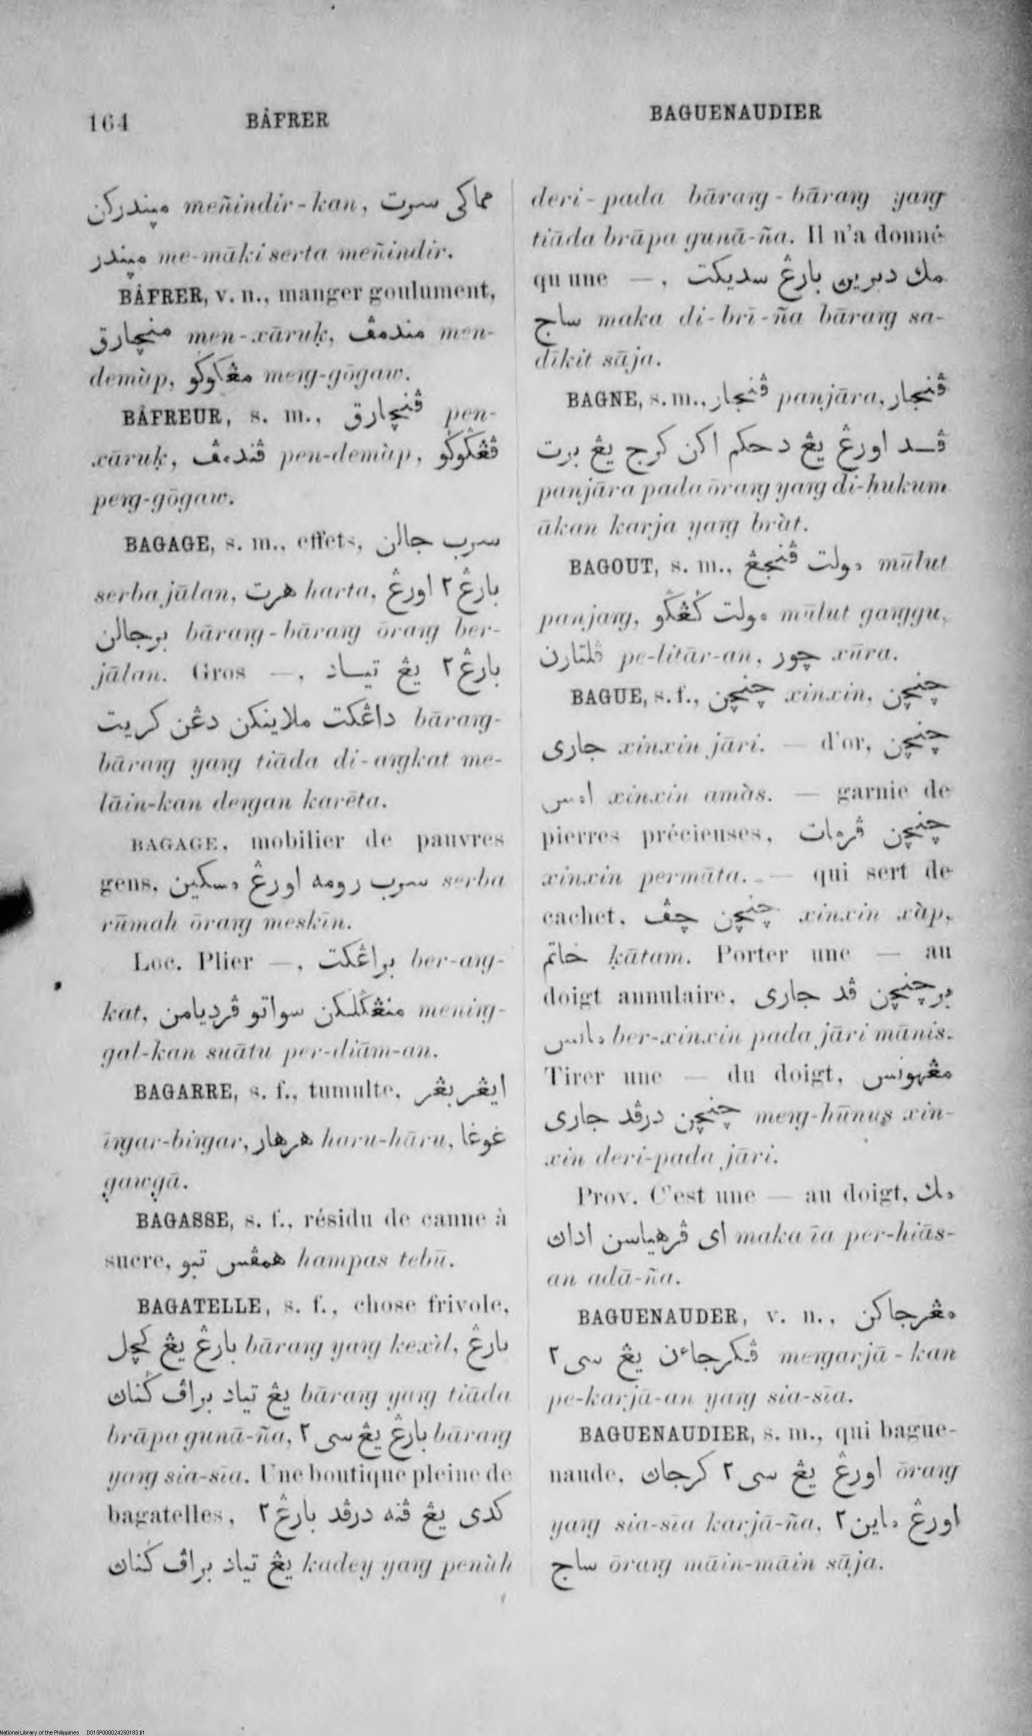 164 BÂFRER
BAGUENAUDIER
مڽندركن meñindir-kan, مماكى سرت
مڽندر me-māki serta meñindir.
BÂFRER, v. n., manger goulument,
منچارق men-xāruḳ, مندمڤ men-
demùp, مڠݢوݢو meng-gōgaw.
BÂFREUR, s. m., ڤنچارق pen-
xāruḳ, ڤندمڤ pen-demùp, ڤڠݢوݢو
peng-gōgaw.
BAGAGE, s. m., effets, سرب جالن
serba jālan, هرت harta, بارڠ٢ اورڠ
برجالن bārang-bārang ōrang ber-
jālan. Gros —, بارڠ٢ يڠ تياد
داڠكت ملاينكن دڠن كريت bārang-
bārang yang tiāda di-angkat me-
lāin-kan dengan karēta.
BAGAGE, mobilier de pauvres
gens, سرب رومه اورڠ مسكين serba
rūmah ōrang meskīn.
Loc. Plier —, براڠكت ber-ang-
kat, منڠݢلكن سواتو ڤرديامن mening-
gal-kan suātu per-diām-an.
BAGARRE, s. f., tumulte, ايڠربڠر
ingar-bingar, هرهار haru-hāru, غوغا
gawgā.
BAGASSE, s. f., résidu de canne à
sucre, همڤس تبو hampas tebū.
BAGATELLE, s. f., chose frivole,
بارڠ يڠ كچل bārang yang kexìl, بارڠ
يڠ تياد براڤ ݢناڽ bārang yang tiāda
brāpa gunā-ña, بارڠ يڠ سى٢ bārang
yang sia-sīa. Une boutique pleine de
bagatelles, كدى يڠ ڤنه درڤد بارڠ٢
يڠ تياد براڤ ݢناڽ kadey yang penùh
deri-pada bārang-bārang yang
tiāda brāpa gunā-ña. Il n'a donné
qu une —, مك دبرين بارڠ سديكت
ساج maka di-brī-ña bārang sa-
dīkit sāja.
BAGNE, s. m., ڤنجار panjāra, ڤنجار
ڤد اورڠ يڠ دحكم اكن كرج يڠ برت
panjāra pada ōrang yang di-ḥukum
ākan karja yang bràt.
BAGOUT, s. m., مولت ڤنجڠ mūlut
panjang, مولت ݢڠݢو mūlut ganggu,
ڤلتارن pe-litār-an, چور xūra.
BAGUE, s. f., چنچن xinxin, چنچن
جارى xinxin jāri. — d'or, چنچن
امس xinxin amàs. — garnie de
pierres précieuses, چنچن ڤرمات
xinxin permāta. — qui sert de
cachet, چنچن چڤ xinxin xàp,
خاتم ḳātam. Porter une — au
doigt annulaire, برچنچن ڤد جارى
مانس ber-xinxin pada jāri mānis.
Tirer une — du doigt, مڠهونس
چنچن درڤد جارى meng-hūnus xin-
xin deri-pada jāri.
Prov. C'est une — au doigt, مك
اى ڤرهياسن اداڽ maka īa per-hiās-
an adā-ña.
BAGUENAUDER, v. n., مڠرجاكن
ڤكرجاءن يڠ سى٢ mengarjā-kan
pe-karjā-an yang sia-sīa.
BAGUENAUDIER, s. m., qui bague-
naude, اورڠ يڠ سى٢ كرجاڽ ōrang
yang sia-sīa karjā-ña, اورڠ ماين٢
ساج ōrang māin-māin sāja.
National Library of the Philippines